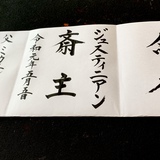 ジュスティニアン
斎主
令和元年五月五日
父